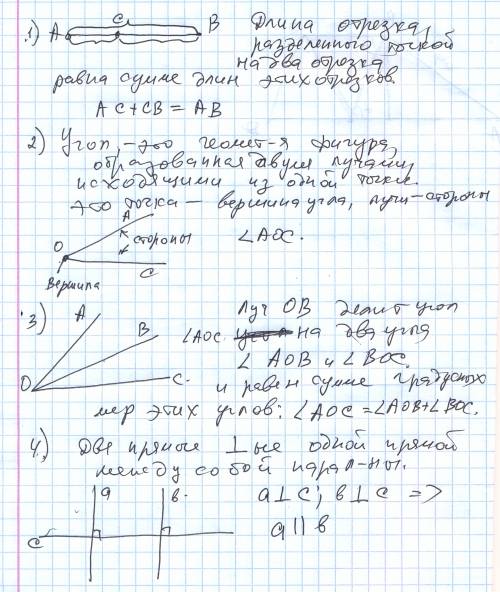 1) A C B Длина отрезка,
разделенного точкой
на два отрезка
равна сумме длин этих отрезков.
AC+CB = AB
2) Угол, -это геомет-я фигура,
образованная двумя лучами,
исходящими из одной точки.
Это точка — вершина угла, лучи-стороны
A
O стороны ∠AOC.
C
Вершина
3) A Луч OB делит угол
B ∠AOC на два угла
∠AOB и ∠BOC.
O C. и равен сумме градусных
мер этих углов: ∠AOC = ∠AOB+∠BOC.
4.) Две прямые ⊥ые одной прямой
между собой парал-ны.
a b a⊥c; b⊥c =>
c a || b